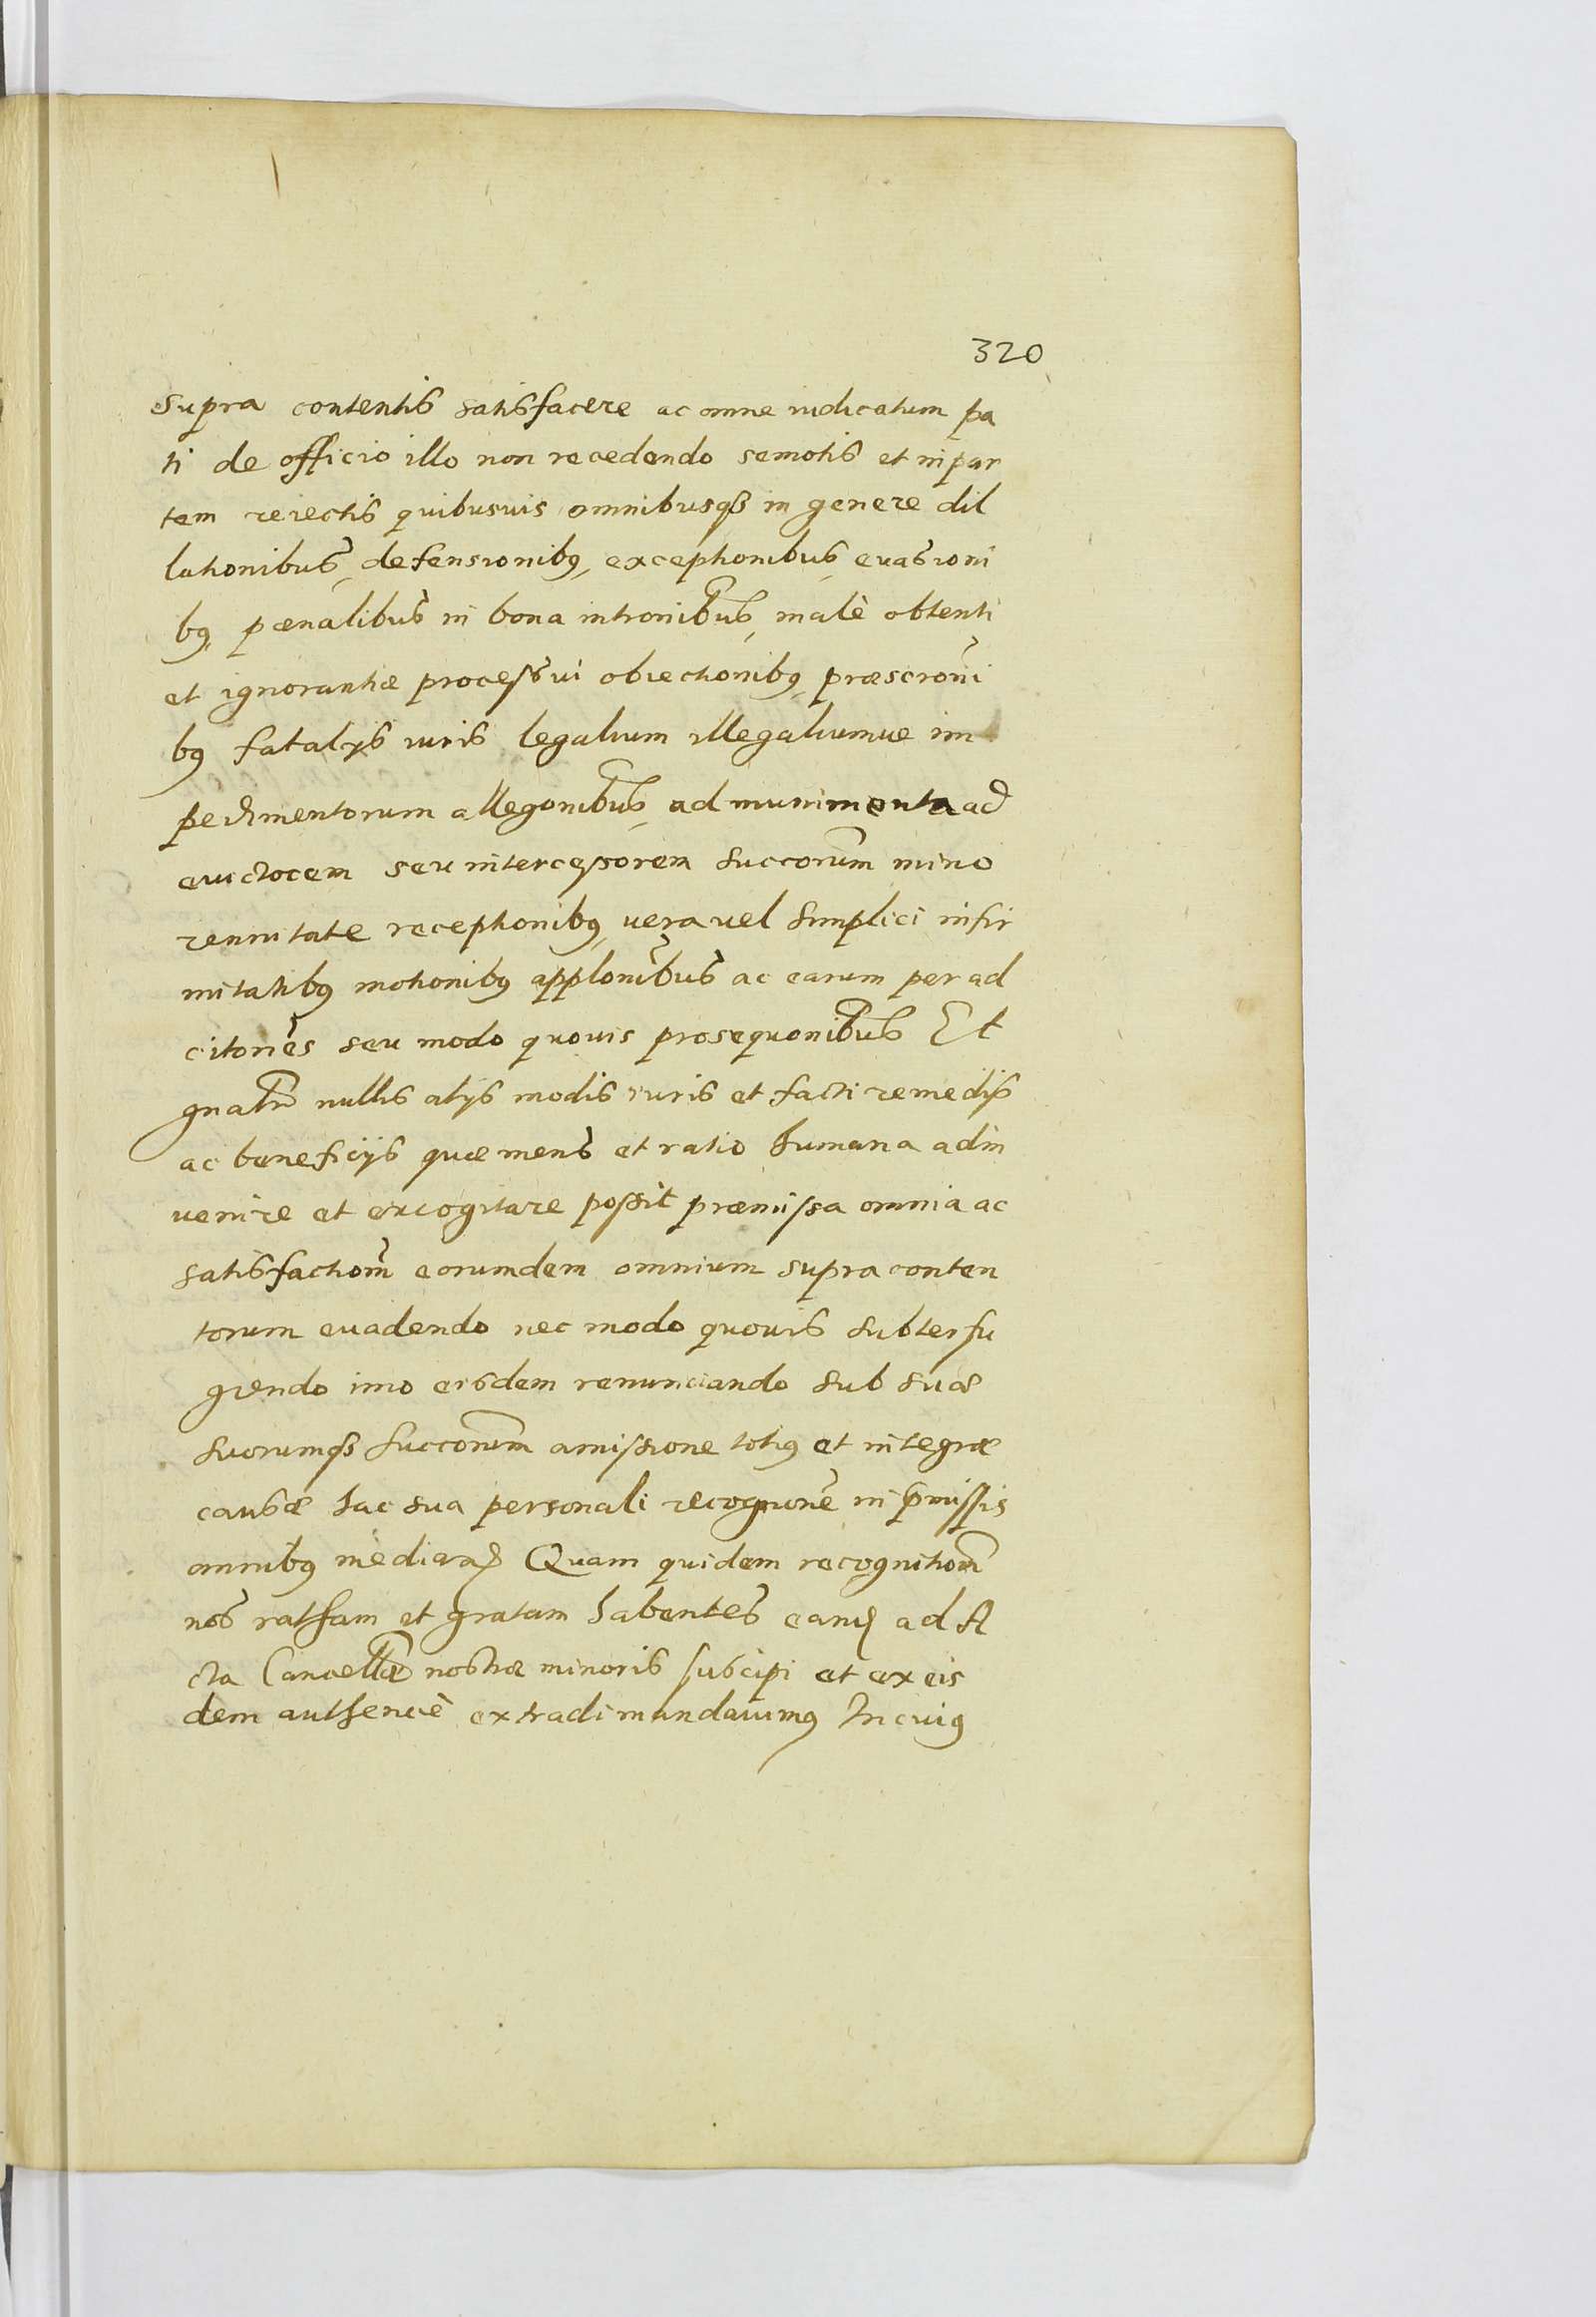 320
supra contentis satisfacere ac omne iudicatum pa
ti de officio illo non recedendo semotis et in par
tem reiectis quibusuis omnibusqß in genere dil
lationibus, defensionibꝯ, exceptionibus, euasioni
bꝯ, pœnalibus in bona intronibus, malè obtenti
et ignorantiæ processui obiectionibꝯ, præscroni
bꝯ fatalys iuris legalium illegaliumue im
pedimentorum allegonibus, ad munimenta ad
euictocem seu intercessorem succorum mino
rennitate receptionibꝯ, uera uel simplici infir
mitatibꝯ motionibꝯ applonibus ac earum per ad
citones seu modo quouis prosequonibus Et
gnatr nullis alys modis iuris et facti remedys
ac beneficijs quæ mens et ratio humana adin
uenire et excogitare possit præmissa omnia ac
satisfactiom eorumdem omnium supra conten
torum euadendo nec modo quouis subterfu
giendo imo eisdem renunciando sub suæ
suorumqß succorum amissione totiꝯ et integræ
causæ hac sua personali recognone in pmissis
omnibꝯ mediaā Quam quidem recognitiom
nos ratham et gratam habentes eand ad A
cta Cancellæ nostræ minoris suscipi et ex eis
dem authencè extradi mandauimꝯ In cuiꝯ